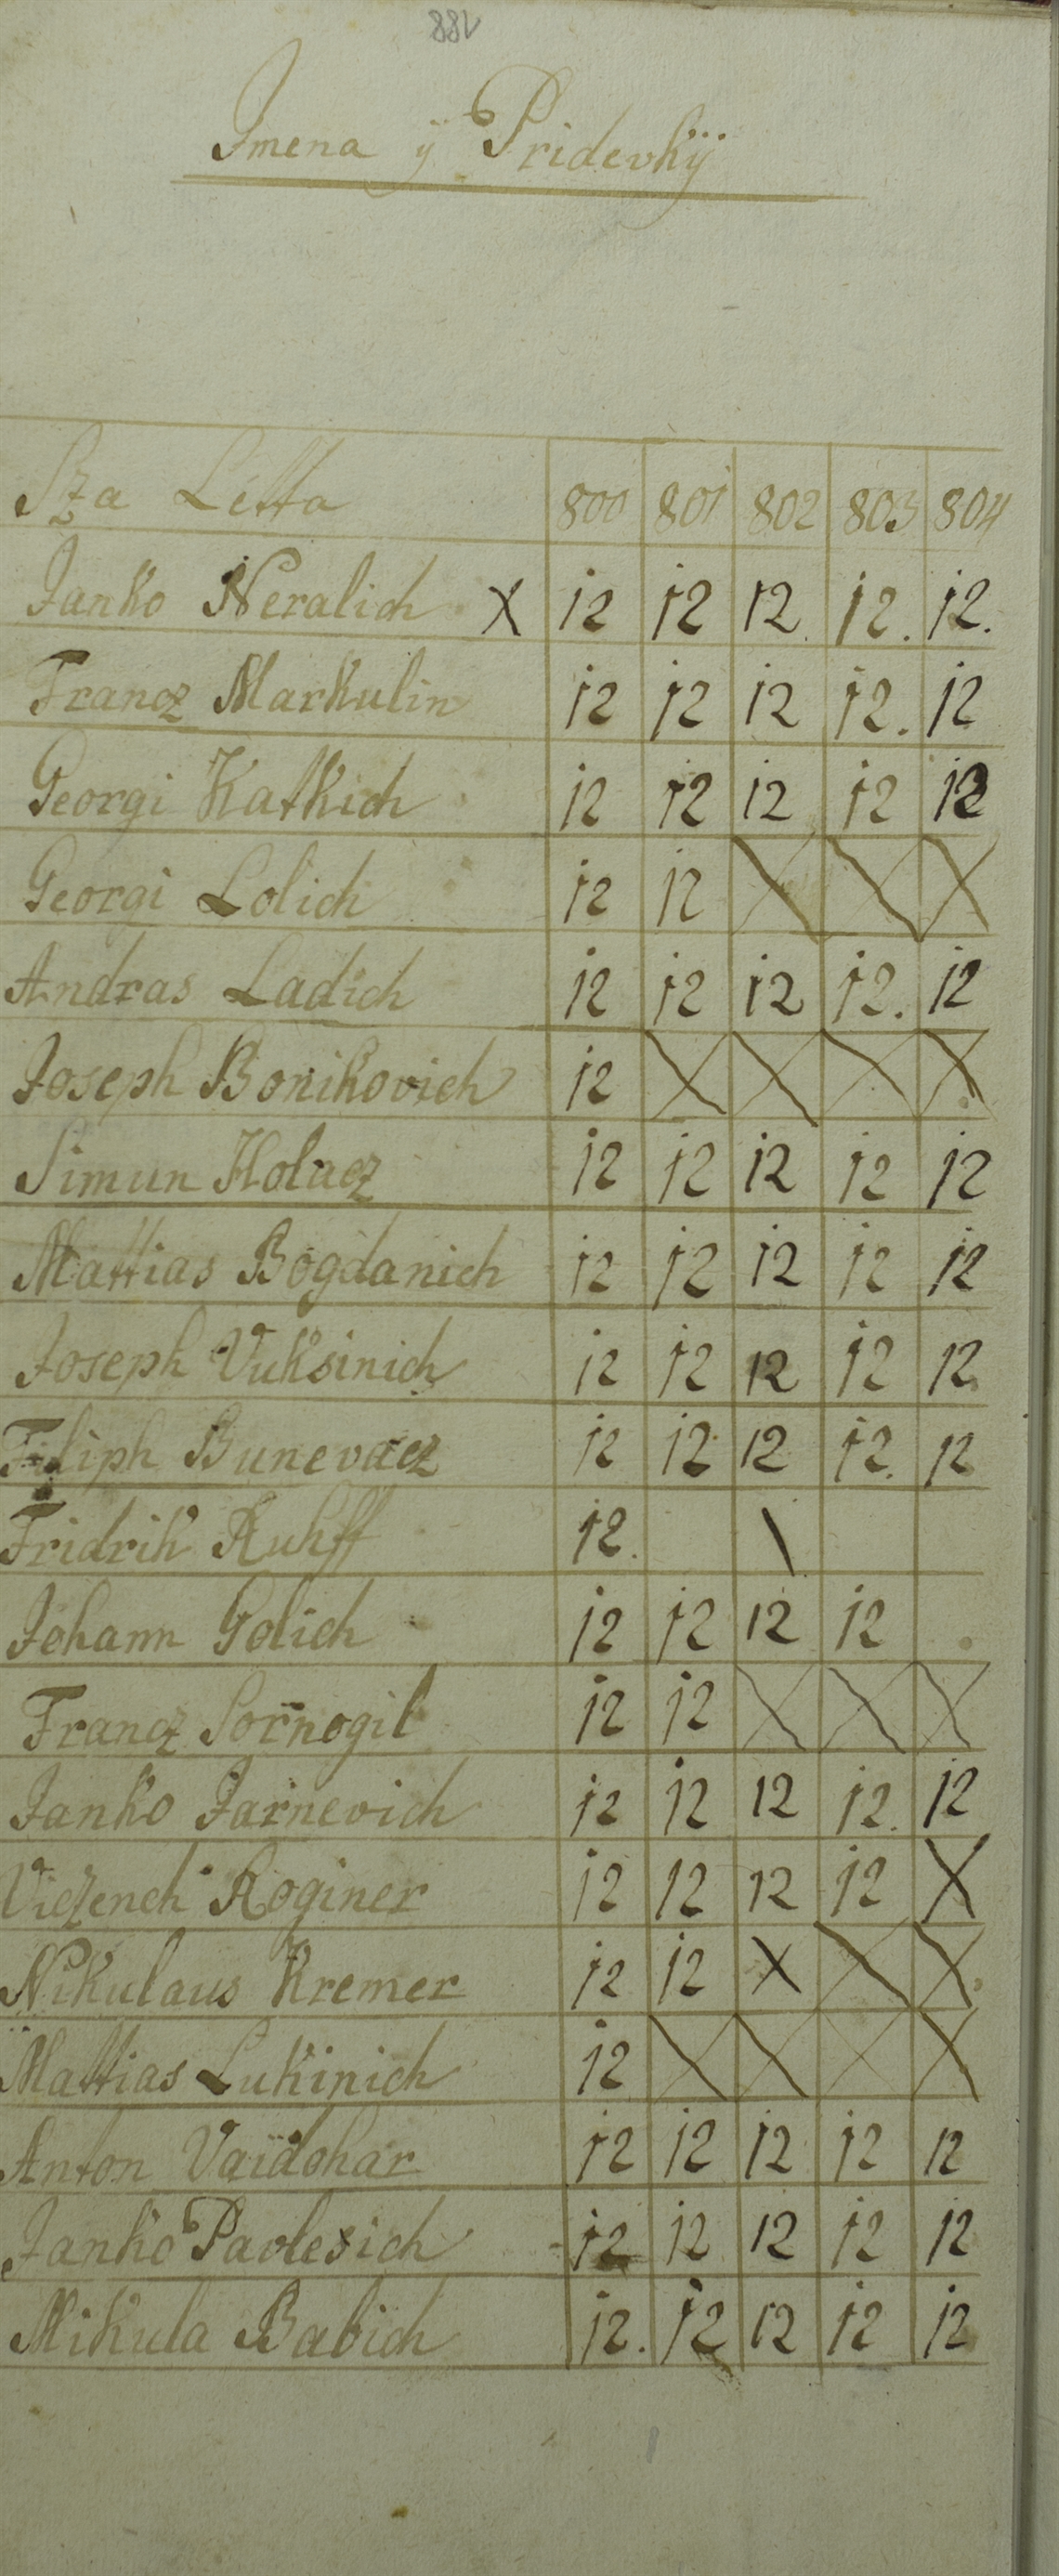 188
Jmena ÿ Pridevkÿ
Sza Letta 800 801 802 803 804
Janko Neralich X 12 12 12. 12. 12.
Francz Markulin 12 12 12 12. 12
Georgi Katkich 12 12 12 12 12
Georgi Lolich 12 12 X X X
Andras Ladich 12 12 12 12. 12
Joseph Bonikovich 12 X X X X
Simun Holacz 12 12 12 12 12
Mattias Bogdanich 12 12 12 12 12
Joseph Vuksinich 12 12 12 12 12
Filiph Bunevacz 12 12 12 12. 12
Fridrik Ruhff 12. \
Johann Golich 12 12 12 12
Francz Sornogil 12 12 X X X
Janko Jarnevich 12 12 12 12. 12
Roginer 12 12 12 12 X
Nikulaus Kremer 12 12 X X X
Mattias Lukinich 12 X X X X
Anton Vaidohar 12 12 12 12 12
Janko Pavlesich 12 12 12 12 12
Mikula Babich 12. 12 12 12 12